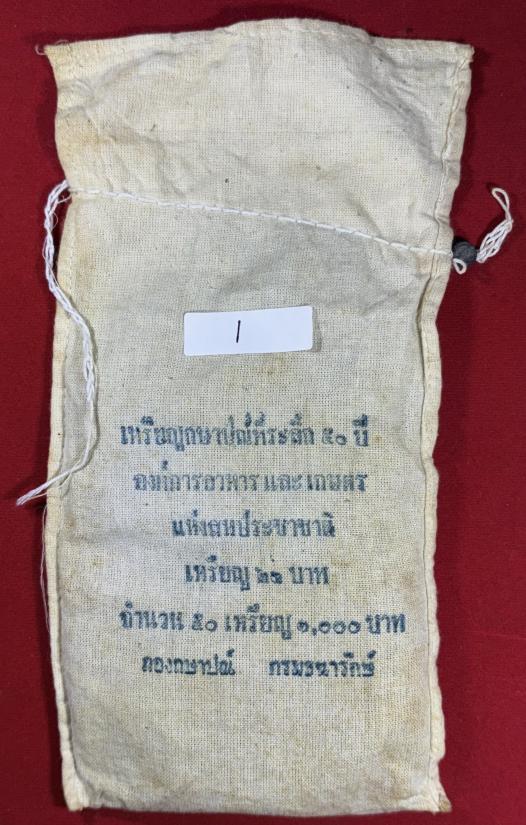 1
เหรียญกษาปณ์ที่ระลึก ๕๐ ปี
องค์การอาหาร และ เกษตร
แห่งสหประชาชาติ
เหรียญ ๒๐ บาท
จำนวน ๕๐ เหรียญ ๑,๐๐๐ บาท
กองกษาปณ์ กรมธนารักษ์